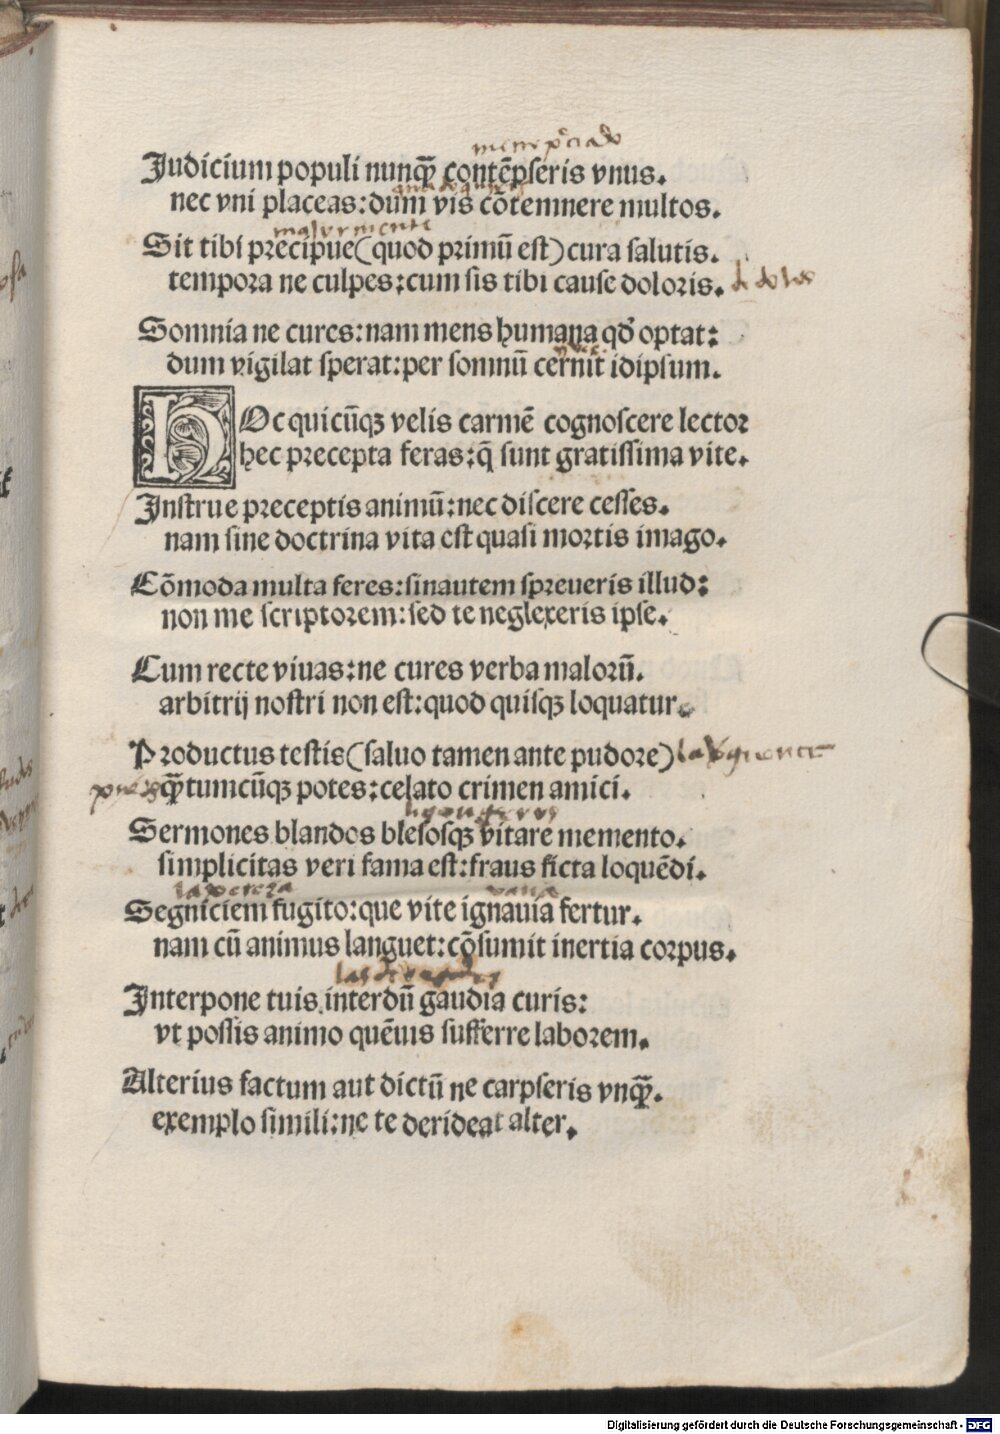 Judicium populi nunqꝫ̃ contẽpseris vnus.
nec vni placeas:dum vis cõtemnere multos.
mayormente
Sit tibi precipue(quod primũ est)cura salutis.
tempora ne culpes:cum sis tibi cause doloris. d dolor
Somnia ne cures:nam mens humana qđ optat:
dum vigilat sperat:per somnũ cernit idipsum.
HOc quicũqꝫ velis carmẽ cognoscere lector
hec precepta feras:q̃ sunt gratissima vite.
Instrue preceptis animũ:nec discere cesses.
nam sine doctrina vita est quasi mortis imago.
Cõmoda multa feres:sinautem spreueris illud:
non me scriptorem:sed te neglexeris ipse.
Cum recte viuas:ne cures verba malorũ.
arbitrij nostri non est:quod quisqꝫ loquatur.
Productus testis(saluo tamen ante pudore)
qꝫ̃tumcũqꝫ potes:celato crimen amici.
Sermones blandos blesosqꝫ vitare memento.
simplicitas veri fama est:fraus ficta loquẽdi.
la pereza
Segniciem fugito:que vite ignauia fertur.
nam cũ animus languet:cõsumit inertia corpus.
Interpone tuis interdũ gaudia curis:
vt possis animo quẽuis sufferre laborem.
Alterius factum aut dictũ ne carpseris vnqꝫ̃.
exemplo simili:ne te derideat alter.
Digitalisierung gefördert durch die Deutsche Forschungsgemeinschaft - DFG